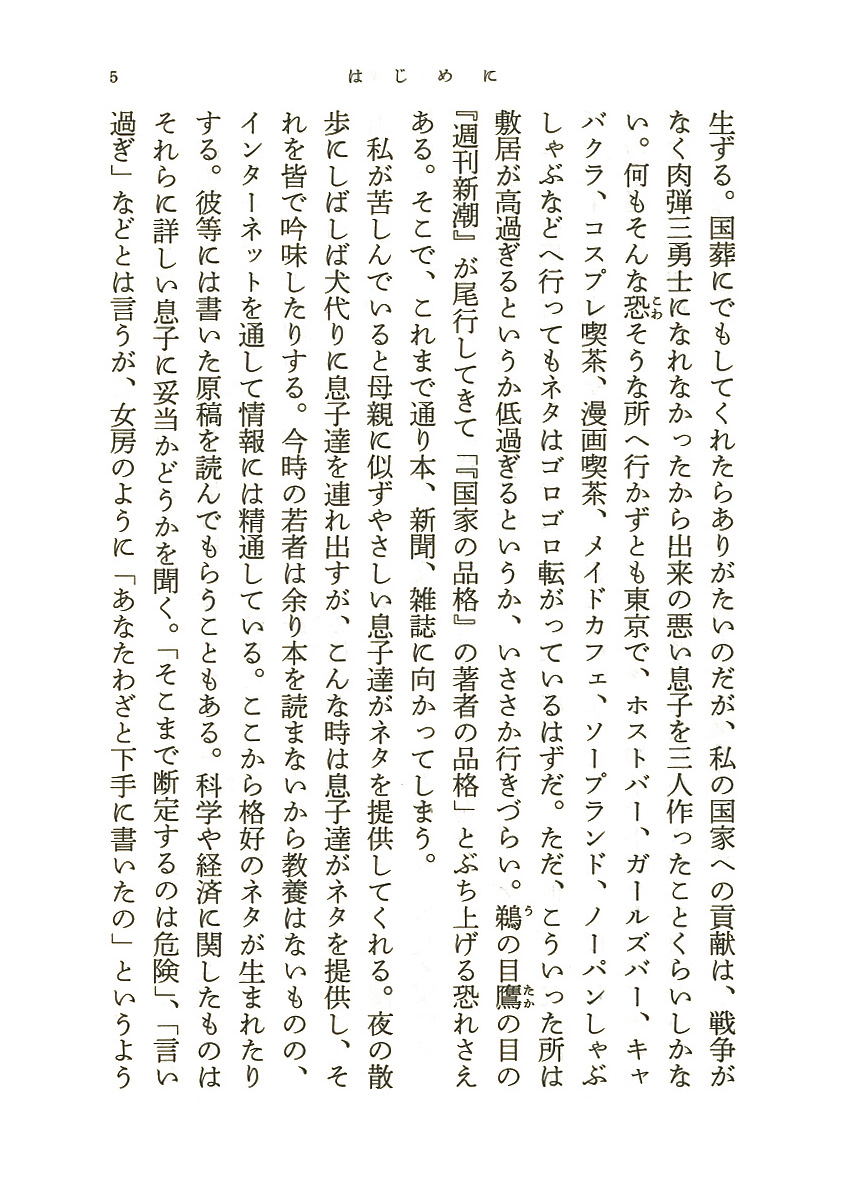 5
はじめに
生ずる。国葬にでもしてくれたらありがたいのだが、私の国家への貢献は、戦争が
なく肉弾三勇士になれなかったから出来の悪い息子を三人作ったことくらいしかな
い。何もそんな恐そうな所へ行かずとも東京で、ホストバー、ガールズバー、キャ
こわ
バクラ、コスプレ喫茶、漫画喫茶、メイドカフェ、ソープランド、ノーパンしゃぶ
しゃぶなどへ行ってもネタはゴロゴロ転がっているはずだ。ただ、こういった所は
敷居が高過ぎるというか低過ぎるというか、いささか行きづらい。鵜の目鷹の目の
う
たか
『週刊新潮』が尾行してきて「『国家の品格』の著者の品格」とぶち上げる恐れさえ
ある。そこで、これまで通り本、新聞、雑誌に向かってしまう。
私が苦しんでいると母親に似ずやさしい息子達がネタを提供してくれる。夜の散
歩にしばしば犬代りに息子達を連れ出すが、こんな時は息子達がネタを提供し、そ
れを皆で吟味したりする。今時の若者は余り本を読まないから教養はないものの、
インターネットを通して情報には精通している。ここから格好のネタが生まれたり
する。彼等には書いた原稿を読んでもらうこともある。科学や経済に関したものは
それらに詳しい息子に妥当かどうかを聞く。「そこまで断定するのは危険」、「言い
過ぎ」などとは言うが、女房のように「あなたわざと下手に書いたの」というよう